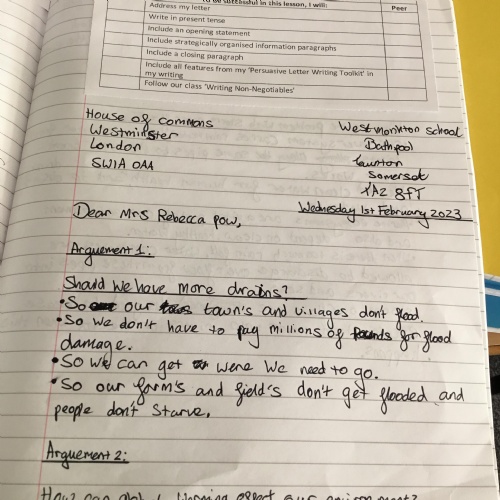 To be successful in this lesson, I will:
Address my letter
Peer
Write in present tense
Include an opening statement
Include strategically organised information paragraphs
Include a closing paragraph
Include all features from my 'Persuasive Letter Writing Toolkit' in
my writing
Follow our class 'Writing Non-Negotiables'
House of commons
Westminster
London
SW1A 0AA
Westmonkton school
Bathpool
Taunton
Somerset
TA2 8FT
Wednesday 1st February 2023
Dear Mrs Rebecca Pow,
Arguement 1:
Should we have more drains?
• So our town's and villages don't flood.
• So we don't have to pay millions of for flood
damage.
• So we can get were we need to go.
• So our farm's and field's don't get flooded and
people don't starve.
Arguement 2:
How can our